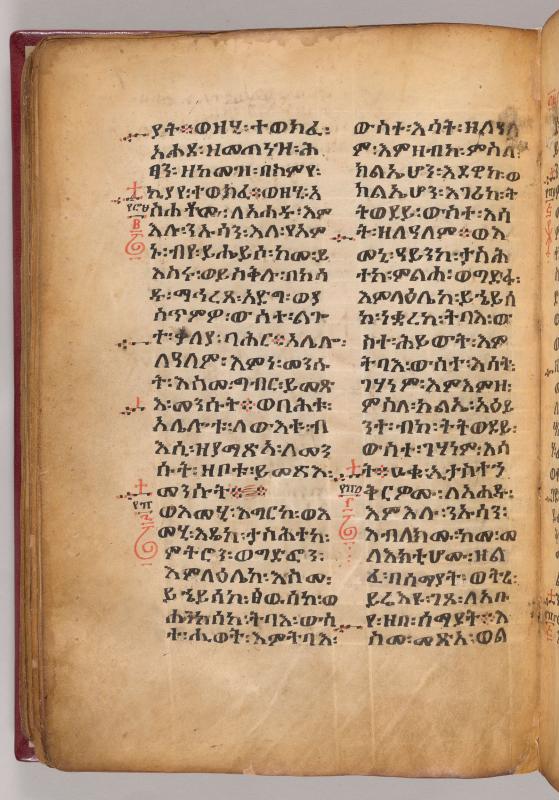 ያት፡፡ወዘሂ፡ተወክፈ፡
አሐደ፡ዘመጠነዝ፡ሕ
ፃነ፡ዘከመዝ፡በስምየ፡
ኪያየ፡ተወክፈ፡፡ወዘሂ፡አ
ስሐቶሙ፡ለአሐዱ፡እም
እሉ፡ንኡሳን፡እለ፡የአም
ኑ፡ብየ፡ይሔይሶ፡ከመ፡ይ
እስሩ፡ወይስቅሉ፡በክሳ
ዱ፡ማኅረጸ፡አድግ፡ወያ
ሰጥምዎ፡ውስተ፡ልጐ
ተ፡ቀላየ፡ባሕር፡፡አሌሎ፡
ለዓለም፡እምነ፡መንሱ
ት፡እስመ፡ግብር፡ይመጽ
እ፡መንሱት፡፡ወባሕቱ፡
አሌሎቱ፡ለውእቱ፡ብ
እሲ፡ዘያማጽኣ፡ለመን
ሱት፡ዘበቱ፡ይመጽእ፡
መንሱት፡፡
ወእመሂ፡እግርከ፡ወእ
መሂ፡እዴከ፡ታስሕተከ፡
ምትሮን፡ወግድፎን፡
እምላዕሌከ፡እስመ፡
ይኄይሰከ፡ፅዉሰከ፡ወ
ሐንካሰከ፡ትባእ፡ውስ
ተ፡ሒወት፡እምትባእ፡
ውስተ፡እሳት፡ዘለዓለ
ም፡እምዘብከ፡ምስለ፡
ክልኤሆን፡እደዊከ፡ወ
ክልኤሆን፡እገሪከ፡ት
ትወደይ፡ውስተ፡እሳ
ት፡ዘለዓለም፡፡ወእ
መኒ፡ዓይንከ፡ታስሕ
ተከ፡ምልሓ፡ወግድፋ፡
እምላዕሌከ፡ይኄይሰ
ከ፡ነቋረከ፡ትባእ፡ው
ስተ፡ሕይወት፡እም
ትባእ፡ውስተ፡እሳት፡
ገሃነም፡እምእምዘ፡
ምስለ፡ክልኤ፡አዕይ
ንት፡ብከ፡ትትወደይ፡
ውስተ፡ገሃነም፡እሳ
ት፡፡ዑቁ፡ኢታስተኅ
ቅርዎሙ፡ለአሐዱ፡
እምእሉ፡ንኡሳን፡
እብለክሙ፡ከመ፡መ
ላእክቲሆሙ፡ዘል
ፈ፡በሰማያት፡ወትረ፡
ይሬእዩ፡ገጸ፡ለአቡ
የ፡ዘበ፡ሰማያት፡፡እ
ስመ፡መጽአ፡ወል